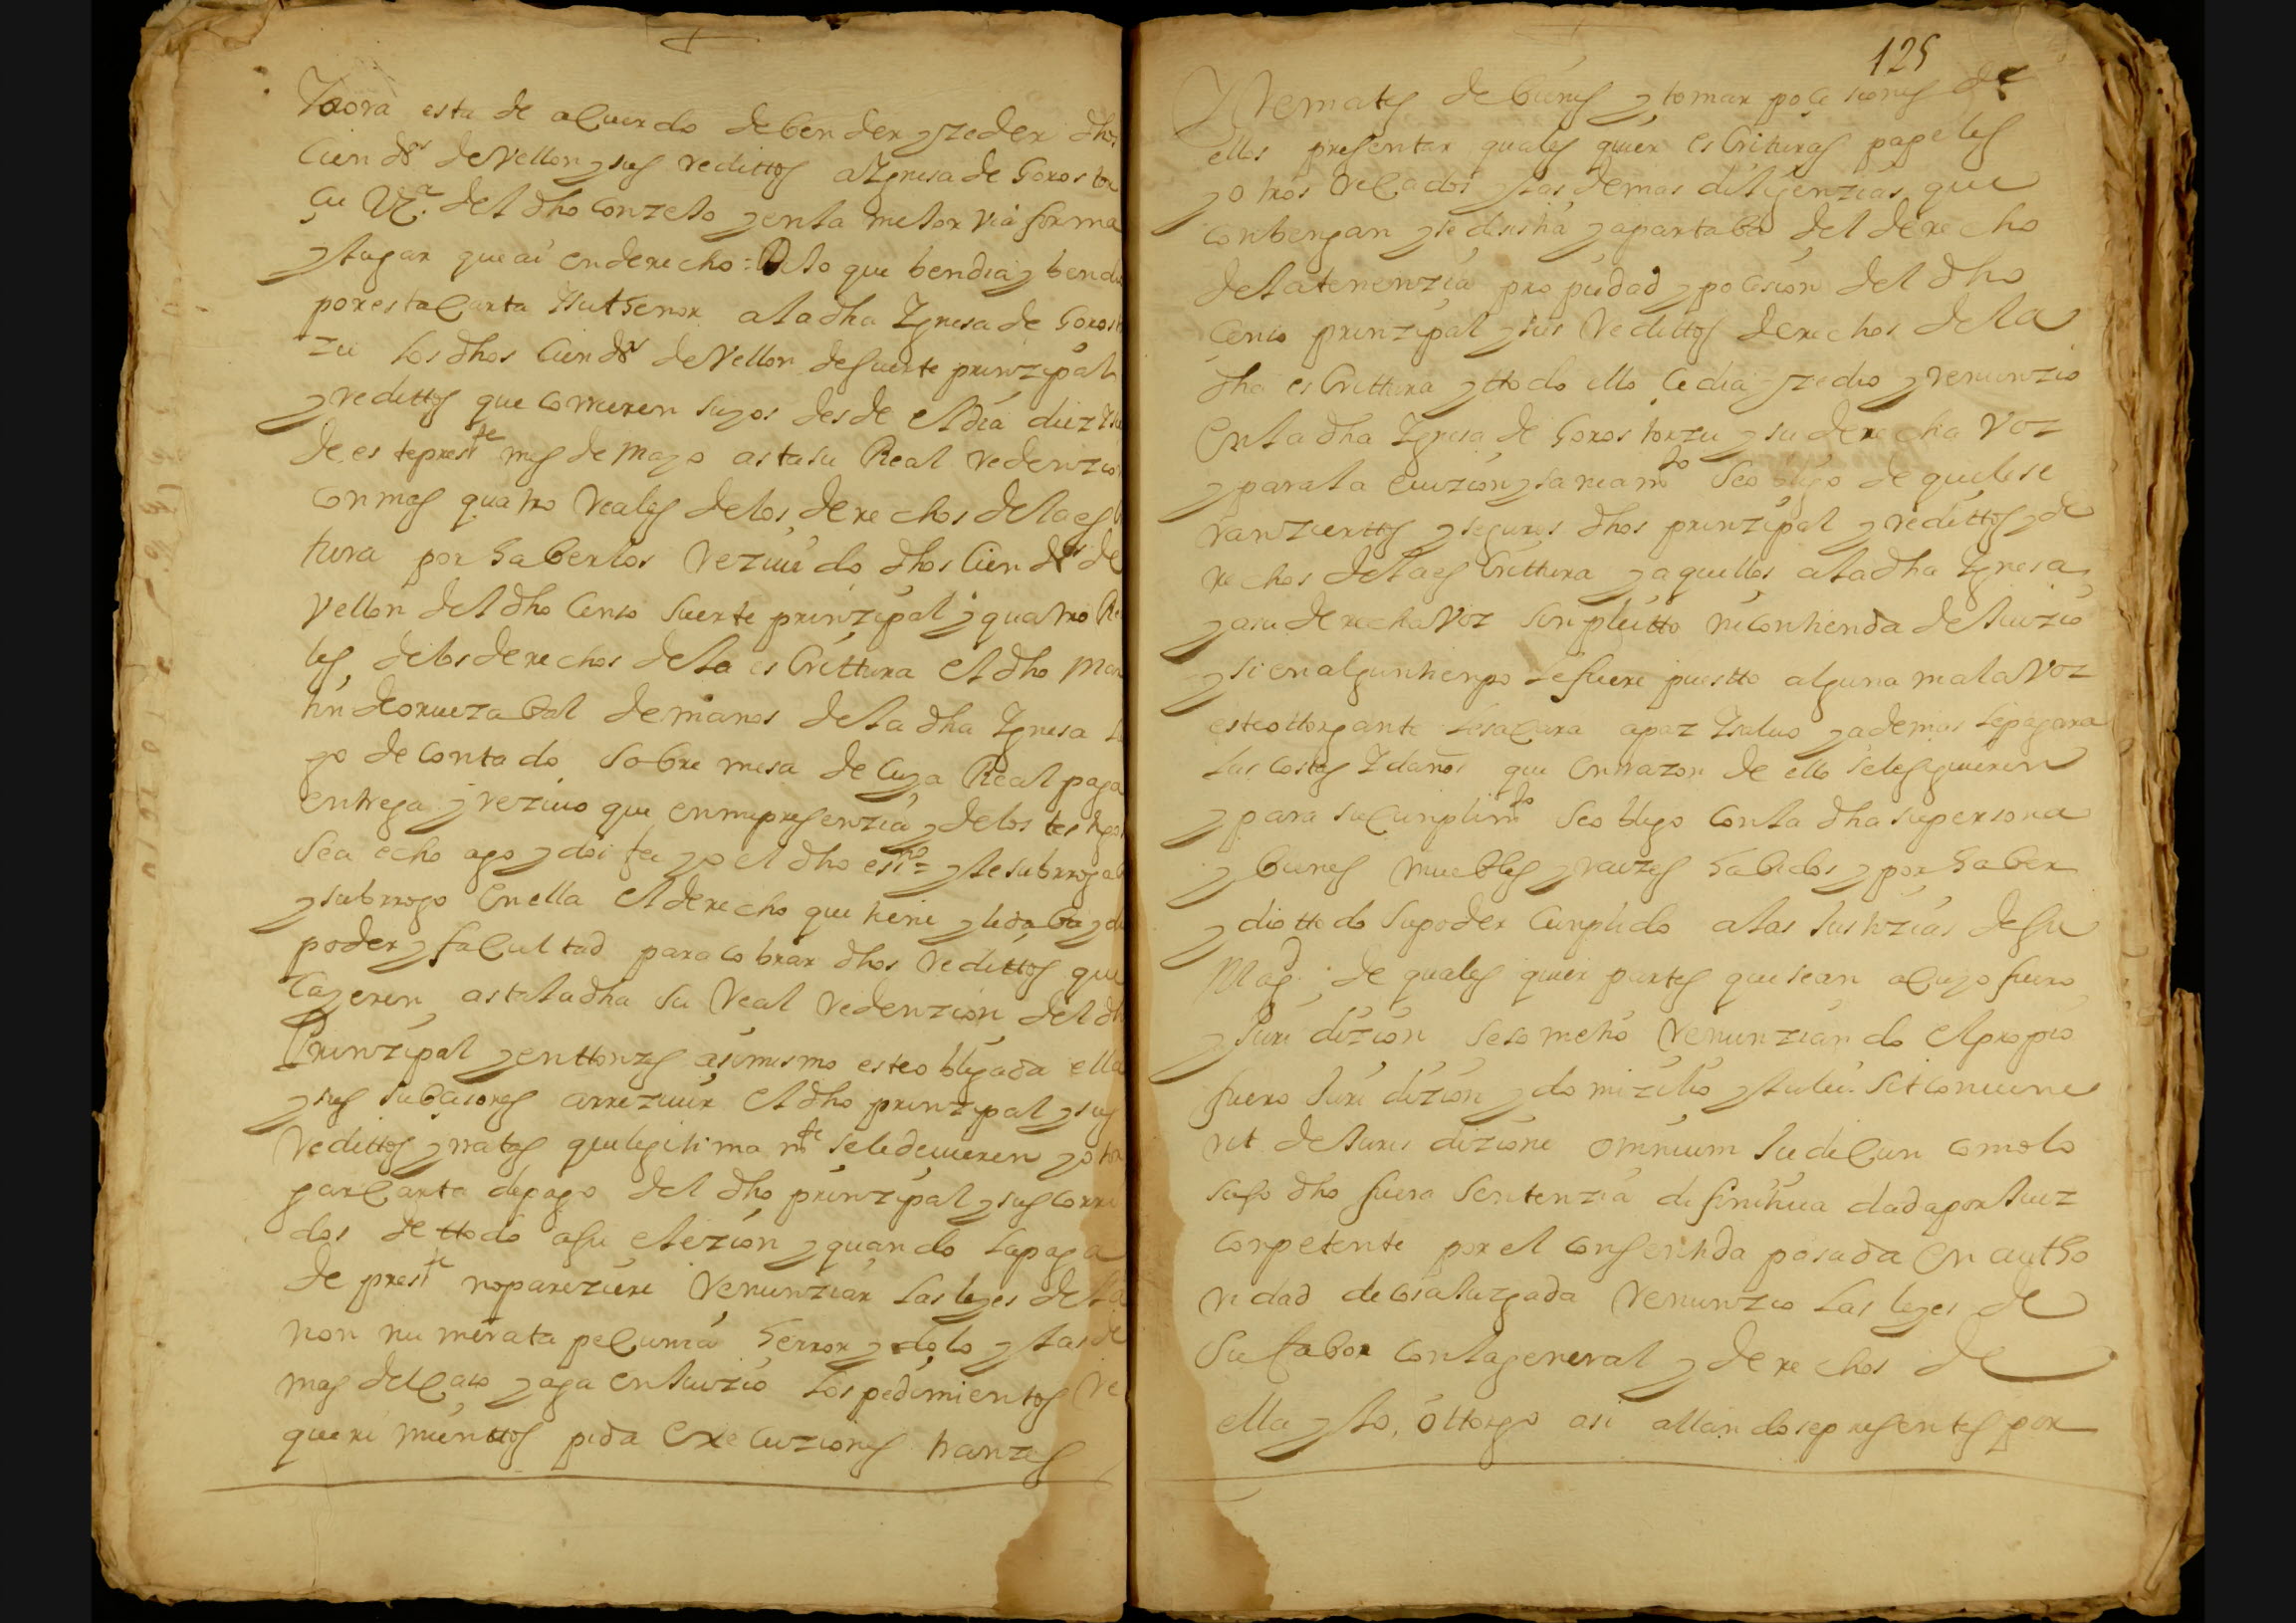 Y aora esta de aCuerdo de bender y zeder dhos
Cien ds de Vellon y sus redittos a Ygnesa de Goros tor
Cu Vz.ª del dho Conzejo y en la mejor via forma
y lugar que ai en derecho: Dijo que bendia y bendio
por esta Carta Jull Señor a la dha Ygnesa de Goros
zu los dhos Cien ds de Vellon de suerte prinzipal
y redittos que Corrieren suyos desde el dia diez
de este presste mes de Mayo asta su Real redenzion
Con mas quatro reales de los derechos de la es
tura por haberlos reziuido dhos Cien ds de
Vellon del dho Censo suerte prinzipal y quatro Rea
les de los derechos de la es Crittura el dho Mar
tin de oruezabal de manos de la dha Ygnesa
go de Contado sobre mesa de Cuya Real paga
entrega y reziuo que en mi presenzia y de los testigos
Sea echo ago y doi fee yo el dho essno y le subrrogab
y subrrogo en ella el derecho que tiene y le daba y di
poder y faCultad para Cobrar dhos redittos que
Cayeren asta la dha su Real redenzion del dh
Prinzipal y enttonzes asimismo este obligada ella
y sus subCesores a rreziuir el dho prinzipal y sus
redittos y rratas que legitima mte se le deuieren y ottor
gar Carta de pago del dho prinzipal y sus Corri
dos de ttodo a su elezion y quando la paga
de presste no pareziere renunziar las leyes de la
non numerata peCunia herror y dolo y las de
mas del Caso y aga en Juizio los pedimientos re
querimienttos pida exeCuziones tranzes
125
Y remates de bienes y tomar poCesiones de
ellos presentar quales quier esCrituras papeles
y otros reCados y las demas dilijenzias que
Conbengan y se desistia y apartaba del derecho
de la tenenzia propiedad y poCesion del dho
Censo prinzipal y sus redittos derechos de la
dha es Crittura y ttodo ello Cedia y zedio y renunzio
en la dha Ygnesa de Goros torzu y su derecha Voz
y para la euizion y saneamto se obligo de que le se
ran zierttos y seguros dhos prinzipal y redittos y de
rechos de la es Crittura y aquellos a la dha Ygnesa
y a su derecha Voz sin pleitto ni Contienda de Juizio
y si en algun tienpo le fuere puestto alguna mala Voz
este ottorgante le saCara a paz Y saluo y ademas le pagara
las Costas Y daños que en rrazon de ello se le siguieren
y para su Cunplimto se obligo Con la dha su persona
y bienes muebles y raizes habidos y por haber
y dio ttodo su poder Cunplido a las Justizias de su
Magd. de quales quier partes que sean a Cuyo fuero
y Juri dizion se sometio renunziando el propio
fuero Juri dizion y domizilio y la lei Sit Conuene
rit de Juris dizione omnium JudiCun Como lo
suso dho fuera sentenzia difinitiua dada por Juez
Conpetente por el Consentida pasada en autho
ridad de Cosa Juzgada renunzio las leyes de
su fabor Con la general y derechos de
ella y lo ottorgo asi allandose presentes por